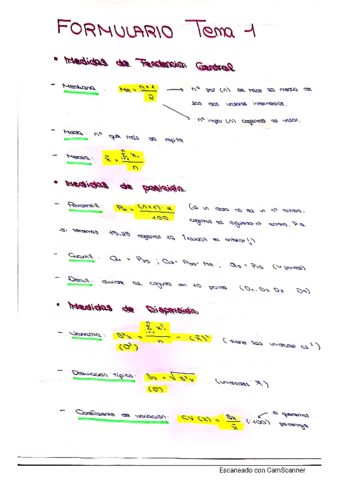 FORMULARIO Tema 1
• Medidas de Tendencia Central
- Mediana: Me = n+1 / 2 → nº par (n) se hace la media de
los dos valores intermedios.
→ nº impar (n) cogemos el valor.
- Moda: nº que más se repite
- Media: x̄ = Σ xi / n
• Medidas de posición.
- Percentil: Pα = (n+1)·α / 100 (si un dato no es un nº entero,
cogemos el siguiente nº entero, P.e
si tenemos 19,25 cogemos 19
- Cuartil: Q1 = P25; Q2 = P50 = Me; Q3 = P75 (4 partes)
- Decil: divide el conjunto en 10 partes (D1, D2, D3... D9)
• Medidas de Dispersión.
- Varianza: S²x = Σ x²i / n - (x̄)² (tiene las unidades al ²)
(σ²)
- Desviación típica: Sx = √S²x (unidades X)
(σ)
- Coeficiente de variación: CV(X) = Sx / x̄ (·100) si queremos
porcentaje
Escaneado con CamScanner